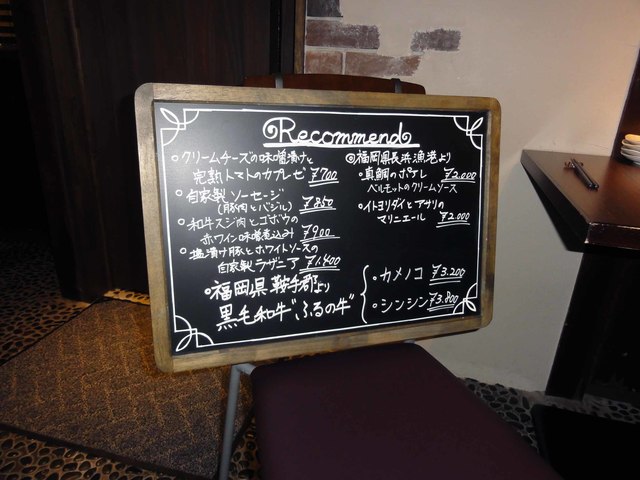 Recommend
○クリームチーズの味噌漬けと
完熟トマトのカプレーゼ ¥700
○自家製 ソーセージ
(豚肉とバジル) ¥850
○和牛スジ肉とゴボウの
赤ワイン味噌煮込み ¥900
○塩漬け豚とホワイトソースの
自家製ラザニア ¥1,400
◎福岡県長浜漁港より
・真鯛のポワレ ¥2,000
ベルモットのクリームソース
・イトヨリダイとアサリの
マリニエール ¥2,000
○福岡県 鞍手郡より
黒毛和牛"ふるの牛"
・カメノコ ¥3,200
・シンシン ¥3,800